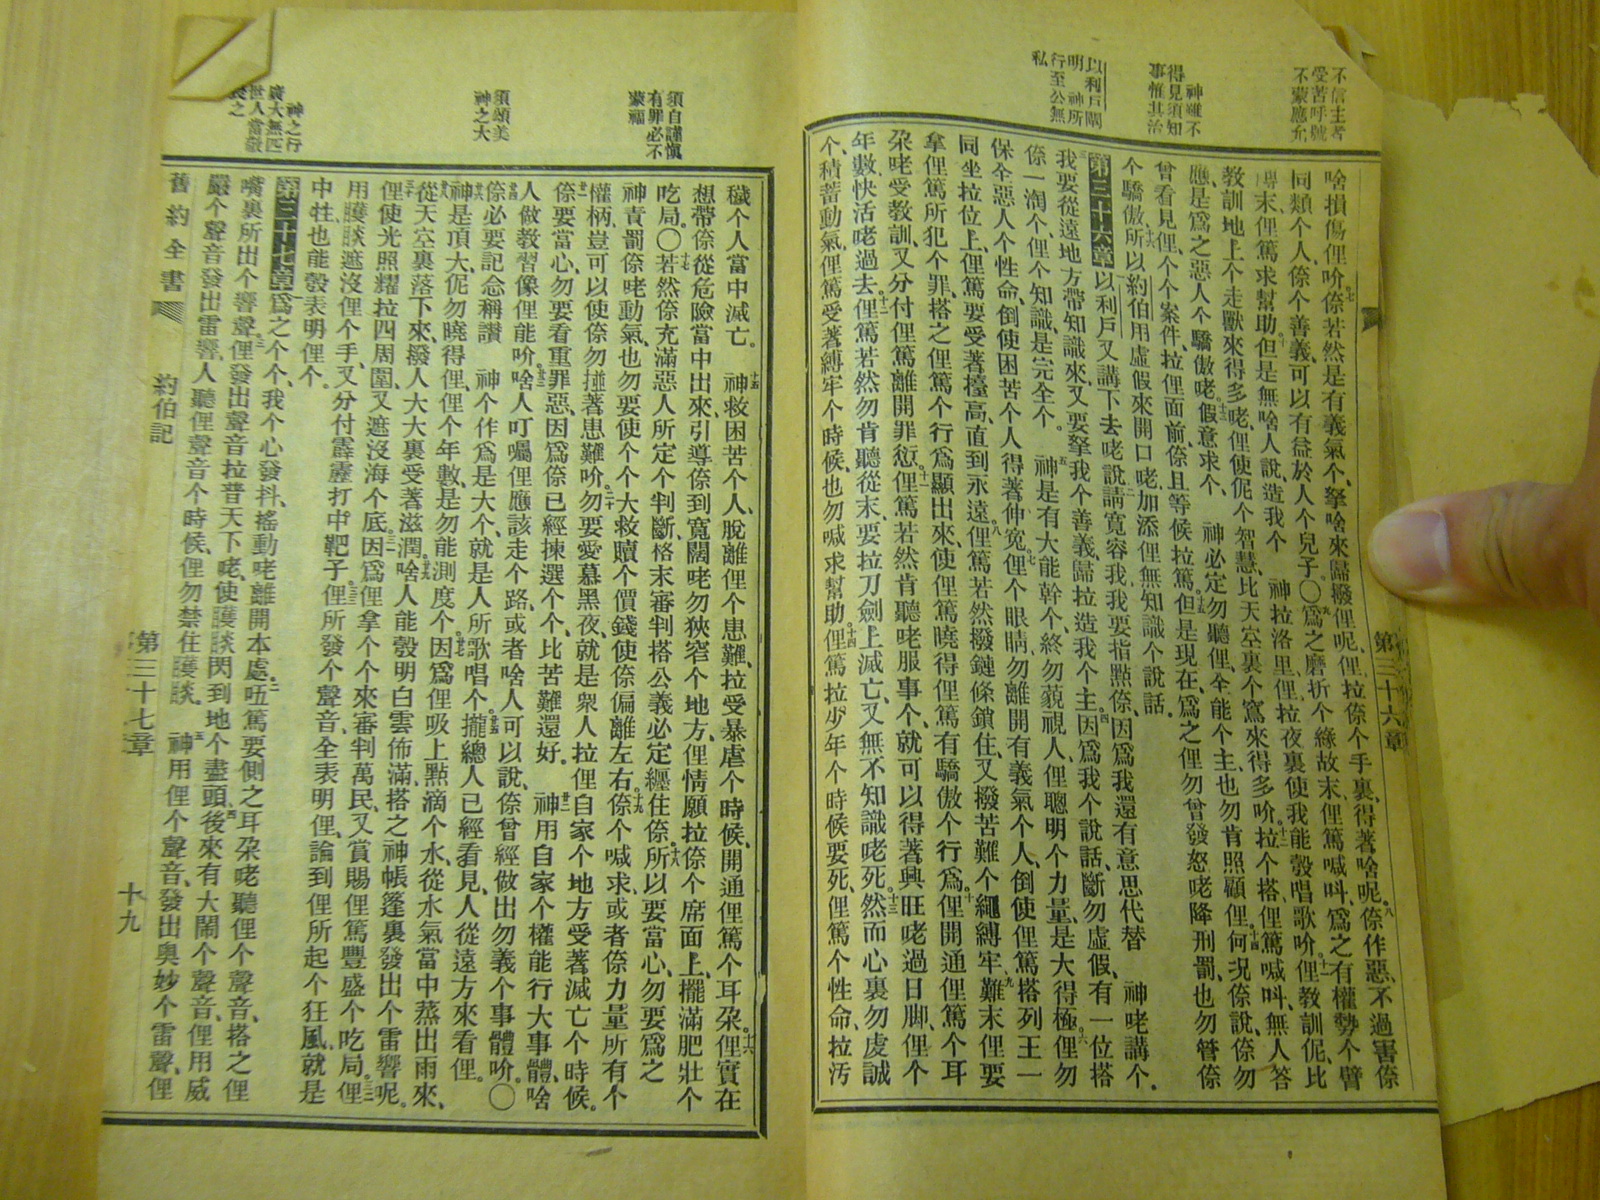 不信主者
受苦呼號
不蒙應允
神雖不
得見須知
事惟其治
以利戶闡
明 神所
行至公無
私
第三十六章
啥損傷俚吤倷若然是有義氣个、拏啥來歸撥俚呢、俚拉倷个手裏、得著啥呢。倷作惡、不過害倷
同類个人、倷个善義、可以有益於人个兒子。〇爲之磨折个緣故末俚篤喊呌、爲之有權勢个臂
膊末俚篤求幫助。但是無啥人說、造我个 神拉洛里、俚拉夜裏使我能彀唱歌吤。俚教訓伲比
教訓地上个走獸來得多咾、俚使伲个智慧、比天空裏个窩來得多吤。拉个搭俚篤喊呌、無人答
應、是爲之惡人个驕傲咾。假意求个、 神必定勿聽俚、全能个主、也勿肯照顧俚。何况倷說、倷勿
曾看見俚、个个案件、拉俚面前、倷且等候拉篤。但是現在、爲之俚勿曾發怒咾降刑罰、也勿管倷
个驕傲、所以約伯用虛假來開口咾加添俚無知識个說話。
第三十六章 以利戶又講下去咾說、請寬容我、我要指點倷、因爲我還有意思代替 神咾講个。
我要從遠地方帶知識來、又要拏我个善義、歸拉造我个主。因爲我个說話、斷勿虛假、有一位搭
倷一淘个、俚个知識、是完全个。 神是有大能幹个、終勿藐視人、俚聰明个力量、是大得極。俚勿
保全惡人个性命、倒使困苦个人、得著伸寃。俚个眼睛、勿離開有義氣个人、倒使俚篤搭列王一
同坐拉位上、俚篤要受著擡高、直到永遠。俚篤若然撥鏈條鎖住、又撥苦難个繩縛牢、難末俚要
拿俚篤所犯个罪、搭之俚篤个行爲顯出來、使俚篤曉得俚篤有驕傲个行爲。俚開通俚篤个耳
朶咾受教訓、又分付俚篤離開罪愆。俚篤若然肯聽咾服事个、就可以得著興旺咾過日脚、俚个
年數、快活咾過去。俚篤若然勿肯聽從末、要拉刀劍上滅亡、又無不知識咾死。然而心裏勿虔誠
个、積蓄動氣、俚篤受著縛牢个時候、也勿喊求幫助。俚篤拉少年个時候要死、俚篤个性命、拉汚
須自謹愼
有罪必不
蒙福
須頌美
神之大
神之行
廣大無匹
世人當敬
畏之
穢个人當中滅亡。 神救困苦个人、脫離俚个患難、拉受暴虐个時候、開通俚篤个耳朶。俚實在
想帶倷從危險當中出來、引導倷到寬闊咾勿狹窄个地方、俚情願拉倷个席面上、擺滿肥壯个
吃局。〇若然倷充滿惡人所定个判斷、格末審判搭公義必定纒住倷。所以要當心、勿要爲之
神責罰倷咾動氣、也勿要使个个大救贖个價錢、使倷偏離左右。倷个喊求、或者倷力量所有个
權柄、豈可以使倷勿掽著患難吤。勿要愛慕黑夜、就是衆人拉俚自家个地方受著滅亡个時候。
倷要當心、勿要看重罪惡、因爲倷已經揀選个个比苦難還好。 神用自家个權能行大事體、啥
人做教習像俚能吤。啥人叮囑俚應該走个路、或者啥人可以說、倷曾經做出勿義个事體吤。〇
倷必要記念稱讚 神个作爲、是大个、就是人所歌唱个。攏總人已經看見、人從遠方來看俚。
神是頂大、伲勿曉得俚、俚个年數、是勿能測度个。因爲俚吸上點滴个水、從水氣當中蒸出雨來、
從天空裏落下來、撥人大大裏受著滋潤。啥人能彀明白雲佈滿、搭之神帳篷裏發出个雷響呢。
俚使光照耀拉四周圍、又遮沒海个底。因爲俚拿个个來審判萬民、又賞賜俚篤豐盛个吃局。俚
用䨥䀫遮沒俚个手、又分付霹靂打中靶子。俚所發个聲音、全表明俚、論到俚所起个狂風、就是
中牲、也能彀表明俚个。
第三十七章 爲之个个、我个心發抖、搖動咾離開本處。㕶篤要側之耳朶咾聽俚个聲音、搭之俚
嘴裏所出个響聲。俚發出聲音拉普天下咾、使䨥䀫閃到地个盡頭。後來有大鬧个聲音、俚用威
嚴个聲音發出雷響、人聽俚聲音个時候、俚勿禁住䨥䀫。 神用俚个聲音、發出奥妙个雷聲、俚
舊約全書
約伯記
第三十七章
十九